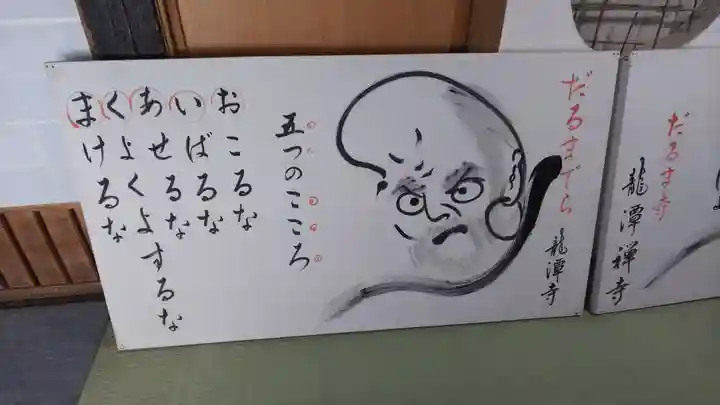 だるまでら
龍潭寺
五つのこころ
おこるな
いばるな
あせるな
くよくよするな
まけるな
だるま寺
龍潭禅寺